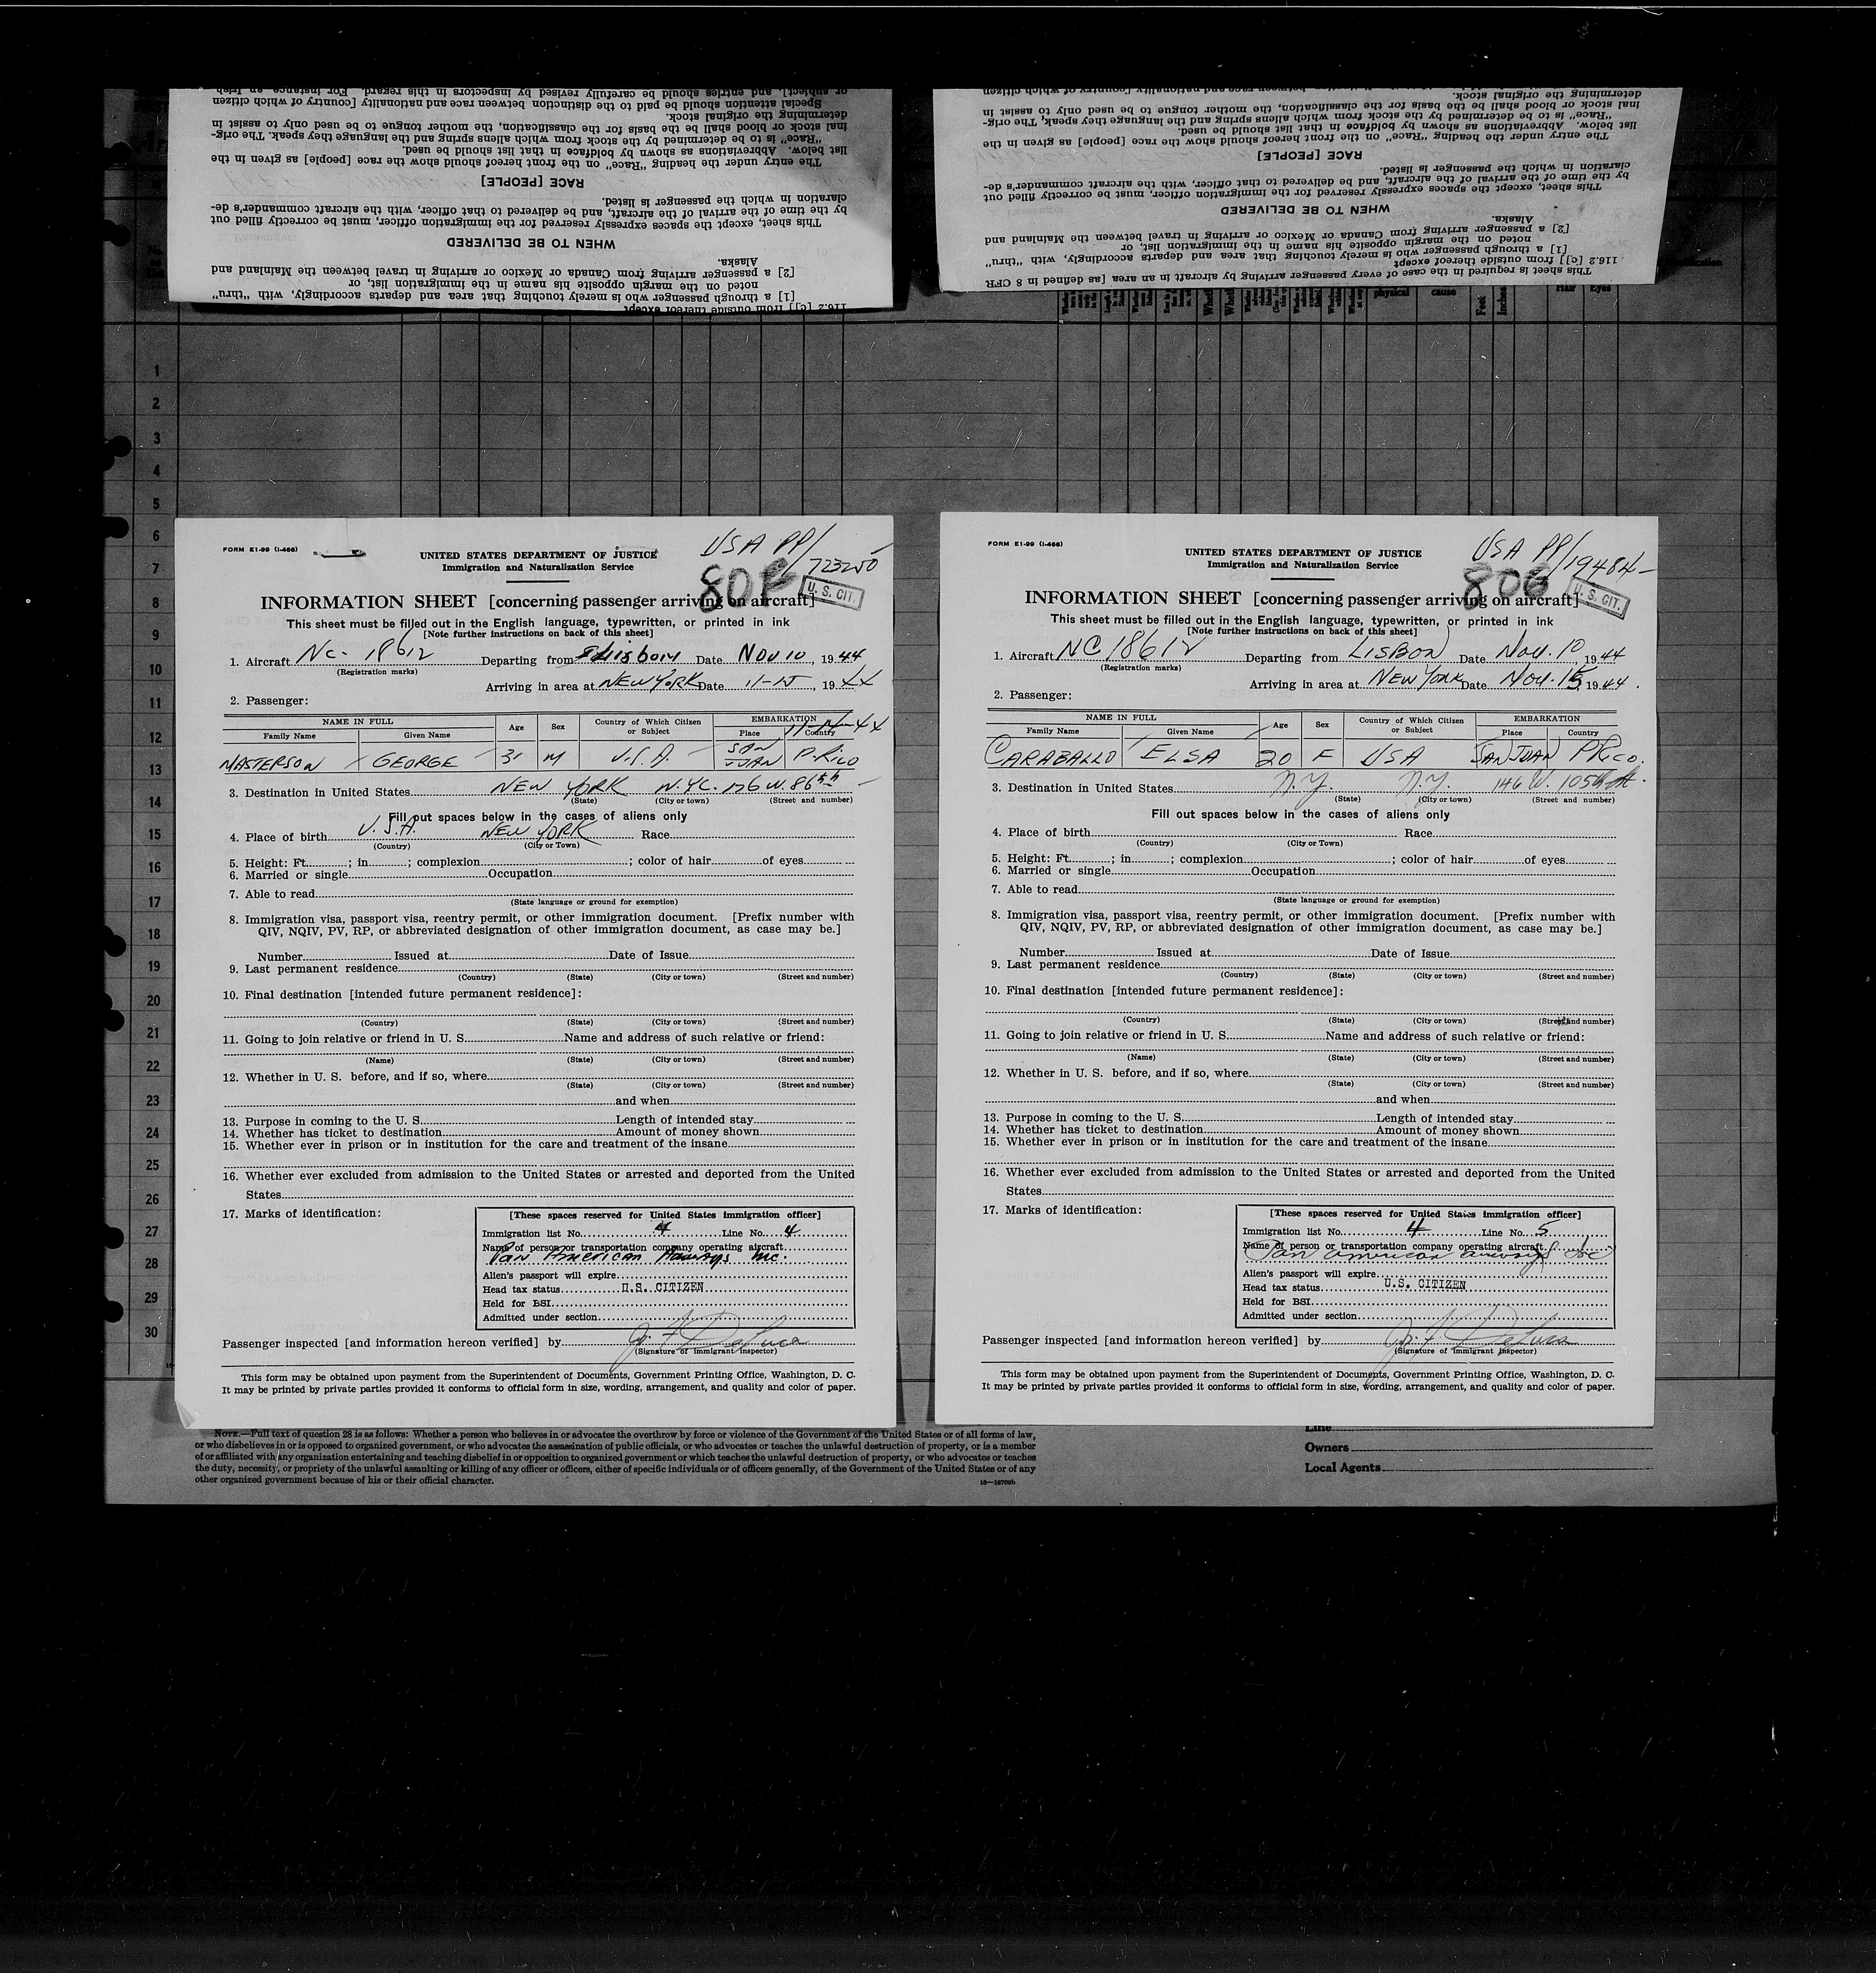 or subject], and entries should be carefully revised by inspectors in this regard. For instance, an Irish
Special attention should be paid to the distinction between race and nationality [country of which citizen
determining the original stock.
inal stock or blood shall be the basis for the classification, the mother tongue to be used only to assist in
"Race" is to be determined by the stock from which aliens spring and the language they speak. The orig-
list below. Abbreviations as shown by boldface in that list should be used.
The entry under the heading "Race" on the front hereof should show the race [people] as given in the
RACE [PEOPLE]
claration in which the passenger is listed.
by the time of the arrival of the aircraft, and be delivered to that officer, with the aircraft commander's de-
This sheet, except the spaces expressly reserved for the immigration officer, must be correctly filled out
WHEN TO BE DELIVERED
Alaska.
[2] a passenger arriving from Canada or Mexico or arriving in travel between the Mainland and
noted on the margin opposite his name in the immigration list, or
[1] a through passenger who is merely touching that area and departs accordingly, with "thru"
116.2 [c]] from outside thereof except
determining the original stock.
inal stock or blood shall be the basis for the classification, the mother tongue to be used only to assist in
"Race" is to be determined by the stock from which aliens spring and the language they speak. The orig-
list below. Abbreviations as shown by boldface in that list should be used.
The entry under the heading "Race" on the front hereof should show the race [people] as given in the
RACE [PEOPLE]
claration in which the passenger is listed.
by the time of the arrival of the aircraft, and be delivered to that officer, with the aircraft commander's de-
This sheet, except the spaces expressly reserved for the immigration officer, must be correctly filled out
WHEN TO BE DELIVERED
Alaska.
[2] a passenger arriving from Canada or Mexico or arriving in travel between the Mainland and
noted on the margin opposite his name in the immigration list, or
[1] a through passenger who is merely touching that area and departs accordingly, with "thru"
116.2 [c]] from outside thereof except
This sheet is required in the case of every passenger arriving by aircraft in an area [as defined in 8 CFR
physical cause Feet Inches Hair Eyes
1
2
3
4
5
6
7
8
9
10
11
12
13
14
15
16
17
18
19
20
21
22
23
24
25
26
27
28
29
30
FORM E1-99 (I-466)
USA PP/
723250
UNITED STATES DEPARTMENT OF JUSTICE
Immigration and Naturalization Service
80F U. S. CIT.
INFORMATION SHEET [concerning passenger arriving on aircraft]
This sheet must be filled out in the English language, typewritten, or printed in ink
[Note further instructions on back of this sheet]
1. Aircraft NC- 18612 Departing from Lisbon Date Nov 10, 1944
(Registration marks)
Arriving in area at NEW YORK Date 11-15, 1944
2. Passenger:
11-14-44
NAME IN FULL Age Sex Country of Which Citizen or Subject EMBARKATION
Family Name Given Name Place Country
MASTERSON GEORGE 31 M U.S.A. SAN JUAN P. RICO
3. Destination in United States NEW YORK N.Y.C. 176 W. 86th
(State) (City or town) (Street and number)
Fill out spaces below in the cases of aliens only
4. Place of birth U.S.A. NEW YORK Race
(Country) (City or Town)
5. Height: Ft. ; in. ; complexion ; color of hair of eyes
6. Married or single Occupation
7. Able to read
(State language or ground for exemption)
8. Immigration visa, passport visa, reentry permit, or other immigration document. [Prefix number with
QIV, NQIV, PV, RP, or abbreviated designation of other immigration document, as case may be.]
Number Issued at Date of Issue
9. Last permanent residence
(Country) (State) (City or town) (Street and number)
10. Final destination [intended future permanent residence]:
(Country) (State) (City or town) (Street and number)
11. Going to join relative or friend in U. S. Name and address of such relative or friend:
(Name) (State) (City or town) (Street and number)
12. Whether in U. S. before, and if so, where
(State) (City or town) (Street and number)
and when
13. Purpose in coming to the U. S. Length of intended stay
14. Whether has ticket to destination Amount of money shown
15. Whether ever in prison or in institution for the care and treatment of the insane
16. Whether ever excluded from admission to the United States or arrested and deported from the United
States
17. Marks of identification:
[These spaces reserved for United States immigration officer]
Immigration list No. 4 Line No. 4
Name of person or transportation company operating aircraft
Pan American Airways Inc.
Alien's passport will expire
Head tax status U.S. CITIZEN
Held for BSI
Admitted under section
Passenger inspected [and information hereon verified] by J. F. DeLuca
(Signature of Immigrant Inspector)
This form may be obtained upon payment from the Superintendent of Documents, Government Printing Office, Washington, D. C.
It may be printed by private parties provided it conforms to official form in size, wording, arrangement, and quality and color of paper.
FORM E1-99 (I-466)
USA PP/
19484
UNITED STATES DEPARTMENT OF JUSTICE
Immigration and Naturalization Service
U. S. CIT.
INFORMATION SHEET [concerning passenger arriving on aircraft]
This sheet must be filled out in the English language, typewritten, or printed in ink
[Note further instructions on back of this sheet]
1. Aircraft NC 18612 Departing from LISBON Date Nov. 10 1944
(Registration marks)
Arriving in area at NEW YORK Date Nov. 15, 1944.
2. Passenger:
NAME IN FULL Age Sex Country of Which Citizen or Subject EMBARKATION
Family Name Given Name Place Country
CARABALLO ELSA 20 F USA SAN JUAN P Rico.
3. Destination in United States N.Y. N.Y. 146 W. 105th St.
(State) (City or town) (Street and number)
Fill out spaces below in the cases of aliens only
4. Place of birth Race
(Country) (City or Town)
5. Height: Ft. ; in. ; complexion ; color of hair of eyes
6. Married or single Occupation
7. Able to read
(State language or ground for exemption)
8. Immigration visa, passport visa, reentry permit, or other immigration document. [Prefix number with
QIV, NQIV, PV, RP, or abbreviated designation of other immigration document, as case may be.]
Number Issued at Date of Issue
9. Last permanent residence
(Country) (State) (City or town) (Street and number)
10. Final destination [intended future permanent residence]:
(Country) (State) (City or town) (Street and number)
11. Going to join relative or friend in U. S. Name and address of such relative or friend:
(Name) (State) (City or town) (Street and number)
12. Whether in U. S. before, and if so, where
(State) (City or town) (Street and number)
and when
13. Purpose in coming to the U. S. Length of intended stay
14. Whether has ticket to destination Amount of money shown
15. Whether ever in prison or in institution for the care and treatment of the insane
16. Whether ever excluded from admission to the United States or arrested and deported from the United
States
17. Marks of identification:
[These spaces reserved for United States immigration officer]
Immigration list No. 4 Line No. 5
Name of person or transportation company operating aircraft
Pan American Airways Inc
Alien's passport will expire
Head tax status U.S. CITIZEN
Held for BSI
Admitted under section
Passenger inspected [and information hereon verified] by J. F. DeLuca
(Signature of Immigrant Inspector)
This form may be obtained upon payment from the Superintendent of Documents, Government Printing Office, Washington, D. C.
It may be printed by private parties provided it conforms to official form in size, wording, arrangement, and quality and color of paper.
NOTE.—Full text of question 28 is as follows: Whether a person who believes in or advocates the overthrow by force or violence of the Government of the United States or of all forms of law,
or who disbelieves in or is opposed to organized government, or who advocates the assassination of public officials, or who advocates or teaches the unlawful destruction of property, or is a member
of or affiliated with any organization entertaining and teaching disbelief in or opposition to organized government or which teaches the unlawful destruction of property, or who advocates or teaches
the duty, necessity, or propriety of the unlawful assaulting or killing of any officer or officers, either of specific individuals or of officers generally, of the Government of the United States or of any
other organized government because of his or their official character.
Line
Owners
Local Agents